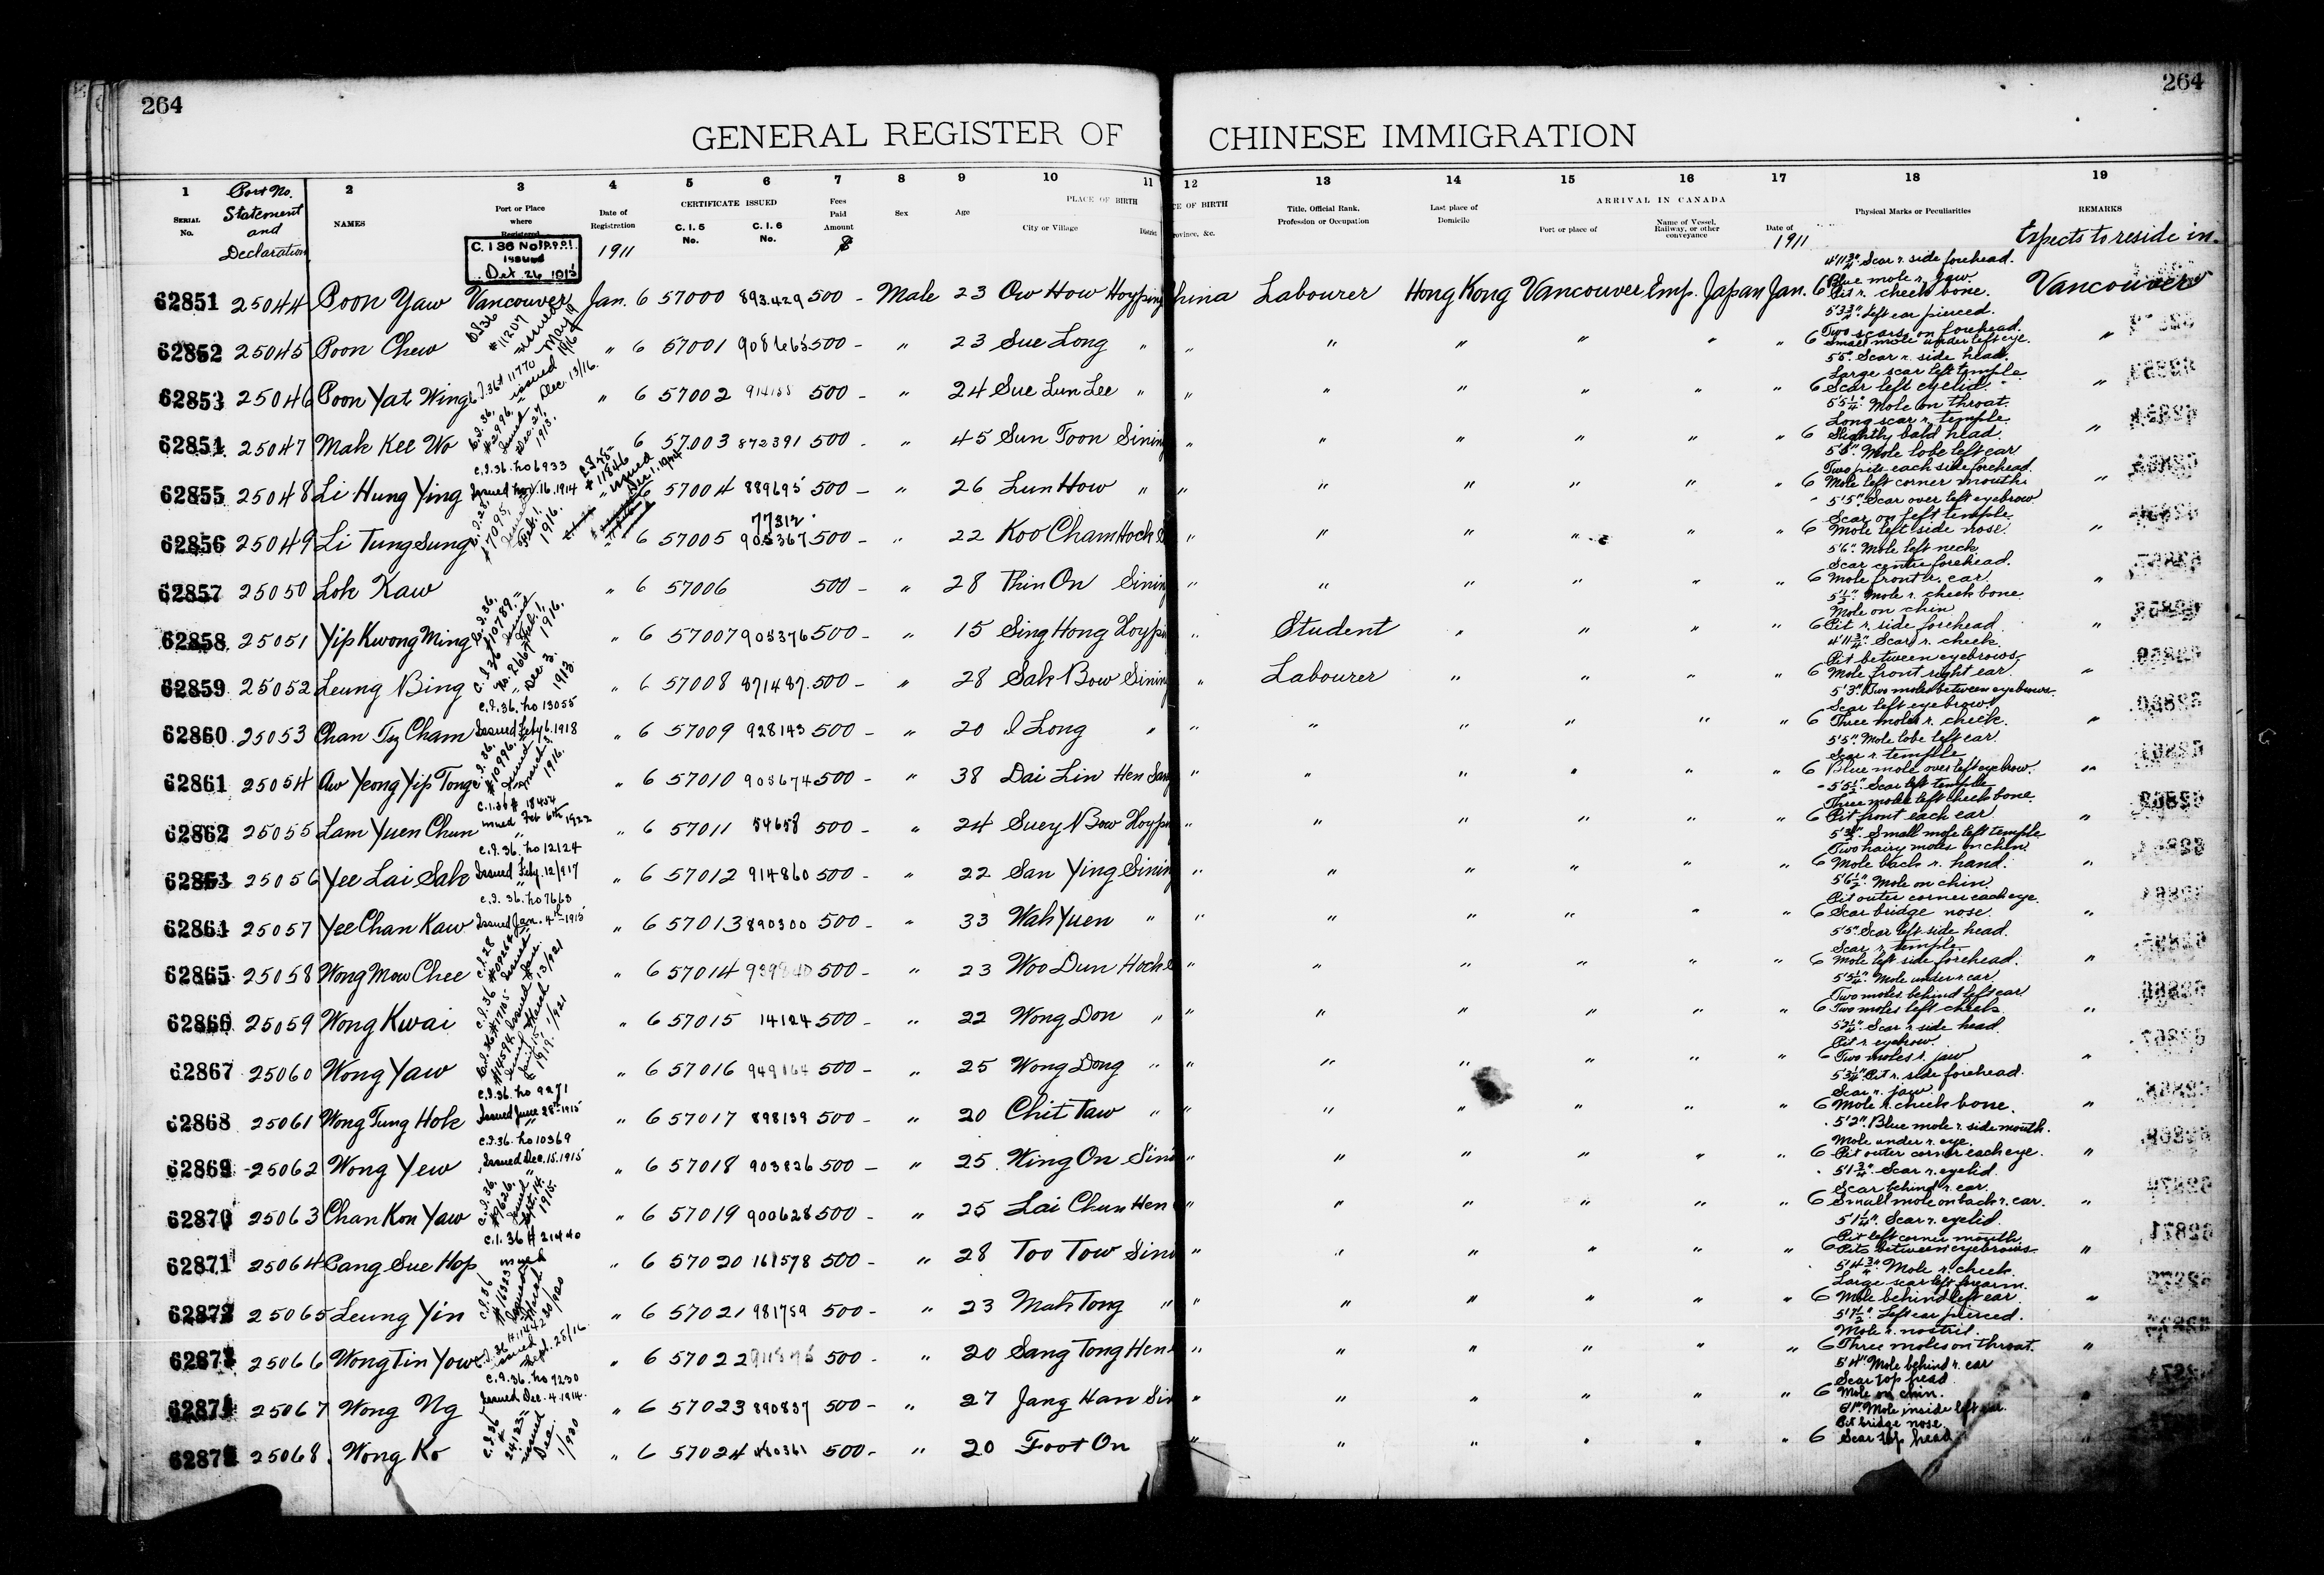 264
264
GENERAL REGISTER OF CHINESE IMMIGRATION
1 Port No. Statement and Declaration 2 3 4 5 6 7 8 9 10 11 12 13 14 15 16 17 18 19
SERIAL No. NAMES Port or Place where Registered Date of Registration CERTIFICATE ISSUED C. I. 5 No. C. I. 6 No. Fees Paid Amount $ Sex Age PLACE OF BIRTH City or Village District Title, Official Rank, Profession or Occupation Last place of Domicile ARRIVAL IN CANADA Port or place of Name of Vessel, Railway, or other conveyance Date of Physical Marks or Peculiarities REMARKS
1911 1911 Expects to reside in
C. I 36 No issued Oct 26 1915
4'11¾" Scar r. side forehead.
Blue mole r. jaw
62851 25044 Poon Yaw Vancouver Jan. 6 57000 893429 500 - Male 23 Ow How Hoyping China Labourer Hong Kong Vancouver Emp. Japan Jan. 6 Pit r. cheek bone. Vancouver
C.I.36 #11207 issued May 19 1916
5'3¾" Left ear pierced.
Two scars on forehead.
62852 25045 Poon Chew " 6 57001 908665 500 - " 23 Sue Long " " " " " " " 6 Small mole under left eye. "
C.I.36 #11770 issued Dec. 13/16.
5'5" Scar r. side head.
Large scar left temple
62853 25046 Poon Yat Wing " 6 57002 500 - " 24 Sue Lun Lee " " " " " " " 6 Scar left eyelid. "
C.I.36. #2996. issued Dec. 27 1913.
5'5¼" Mole on throat.
Long scar r. temple
62854 25047 Mak Kee Wo 6 57003 872391 500 - " 45 Sun Toon Sining " " " " " " 6 Slightly bald head. "
C.I.36. No 6933 Issued Nov. 16. 1914
5'5" Mole lobe left ear
Two pits each side forehead.
62855 25048 Li Hung Ying 6 57004 889695 500 - " 26 Lun How " " " " " " " 6 Mole left corner mouth. "
5'5" Scar over left eyebrow
Scar on left temple
77312
62856 25049 Li Tung Sung " 6 57005 905367 500 - " 22 Koo Cham " " " " " " 6 Mole left side nose. "
5'6" Mole left neck
Scar centre forehead.
62857 25050 Lok Kaw " 6 57006 500 - " 28 Thin On Sining " " " " " " 6 Mole front r. ear. "
C.I.36. #10789. issued Feb. 1, 1916.
5'½" Mole r. cheek bone
Mole on chin
62858 25051 Yip Kwong Ming " 6 57007 905376 500 - " 15 Sing Hong Hoyping " Student " " " " 6 Pit r. side forehead "
C.I.36 No. 2667 Dec 3. 1913
4'11¾" Scar r. cheek
Pit between eyebrows
62859 25052 Leung Bing " 6 57008 871487 500 - " 28 Sak Bow Sining " Labourer " " " " 6 Mole front right ear. "
C.I.36. No 13055 Issued Feby 6. 1918
5'3" Two moles between eyebrows
Scar left eyebrow
62860 25053 Chan Tsy Cham " 6 57009 928143 500 - " 20 I Long " " " " " " " 6 Three moles r. cheek. "
C.I.36. #10996. issued March 3. 1916.
5'5" Mole lobe left ear.
Scar r. temple
62861 25054 Aw Yeong Yip Tong " 6 57010 905674 500 - " 38 Dai Lin Hen San " " " " " " 6 Blue mole over left eyebrow. "
C.I.36 # 18454 issued Feb 6th 1922
5'5½" Scar left temple
Three moles left cheek bone
62862 25055 Lam Yuen Chun " 6 57011 54658 500 - " 24 Suey Bow Hoyping " " " " " " 6 Pit front each ear "
C.I.36. No 12124 Issued Feby. 12/1917
Small mole left temple
Two hairy moles on chin
62863 25056 Yee Lai Sak " 6 57012 914860 500 - " 22 San Ying Sining " " " " " " 6 Mole back r. hand. "
C.I. 36. No 7663 Issued Jan. 4th 1915
5'6½" Mole on chin
Pit outer corner each eye.
62864 25057 Yee Chan Kaw " 6 57013 890300 500 - " 33 Wah Yuen " " " " " " " 6 Scar bridge nose. "
5'5" Scar left side head.
Scar r. temple
62865 25058 Wong Mow Chee " 6 57014 500 - " 23 Woo Dun " " " " " " 6 Mole left side forehead. "
5'5¼" Mole under r. ear
Two moles behind left ear
62866 25059 Wong Kwai " 6 57015 14124 500 - " 22 Wong Don " " " " " " " 6 Two moles left cheek "
Scar r. side head
Pit r. eyebrow
62867 25060 Wong Yaw " 6 57016 949164 500 - " 25 Wong Dong " " " " " " " 6 Two moles r. jaw "
C.I.36. No 9271 Issued June 28th 1915
5'3¼" Pit r. side forehead.
Scar r. jaw
62868 25061 Wong Tung Hok " 6 57017 898139 500 - " 20 Chit Taw " " " " " " " 6 Mole r. cheek bone. "
C.I.36. No 10369 Issued Dec. 15. 1915
5'2" Blue mole r. side mouth.
Mole under r. eye.
62869 25062 Wong Yew " 6 57018 903826 500 - " 25 Wing On " " " " " " 6 Pit outer corner each eye. "
C.I.36. #9626. issued Sept. 14. 1915.
5'1¾" Scar r. eyelid
Scar behind r. ear.
62870 25063 Chan Kon Yaw " 6 57019 900628 500 - " 25 Lai Chun Hen " " " " " " 6 Small mole on back r. ear. "
C.I.36 # 21440 issued
5'1¼" Scar r. eyelid.
Pit left corner mouth
62871 25064 Pang Sue Hop " 6 57020 161578 500 - " 28 Too Tow " " " " " " 6 Pits between eyebrows "
5'4¾" Mole r. cheek
Large scar left forearm.
62872 25065 Leung Yin " 6 57021 981759 500 - " 23 Mah Tong " " " " " " " 6 Mole behind left ear. "
5'7½" Left ear pierced.
Mole r. nostril.
62873 25066 Wong Tin Yow " 6 57022 500 - " 20 Sang Tong Hen " " " " " " 6 Three moles on throat. "
C.I.36. No 7230 Issued Dec. 4. 1914.
5'4" Mole behind r. ear
Scar top head
62874 25067 Wong Ng " 6 57023 890837 500 - " 27 Jang Han " " " " " " 6 Mole on chin. "
C.I.36 # 24123 issued Dec. 1/920
Mole inside left ear.
Pit bridge nose.
62875 25068 Wong Ko " 6 57024 500 - " 20 Foot On " " " " " " 6 Scar top head "